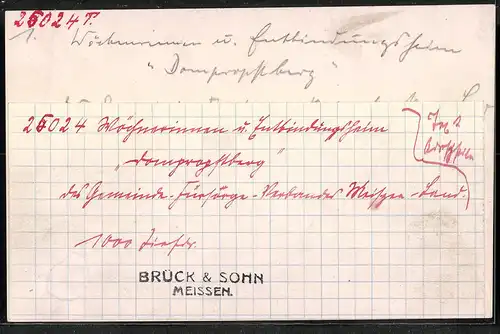 25024 T.
1. Wöchnerinnen u. Entbindungsheim
"Dompropstberg"
25024 Wöchnerinnen u. Entbindungsheim
"Dompropstberg"
des Gemeinde-Fürsorge-Verbandes Meißen-Land.
1000
BRÜCK & SOHN
MEISSEN.